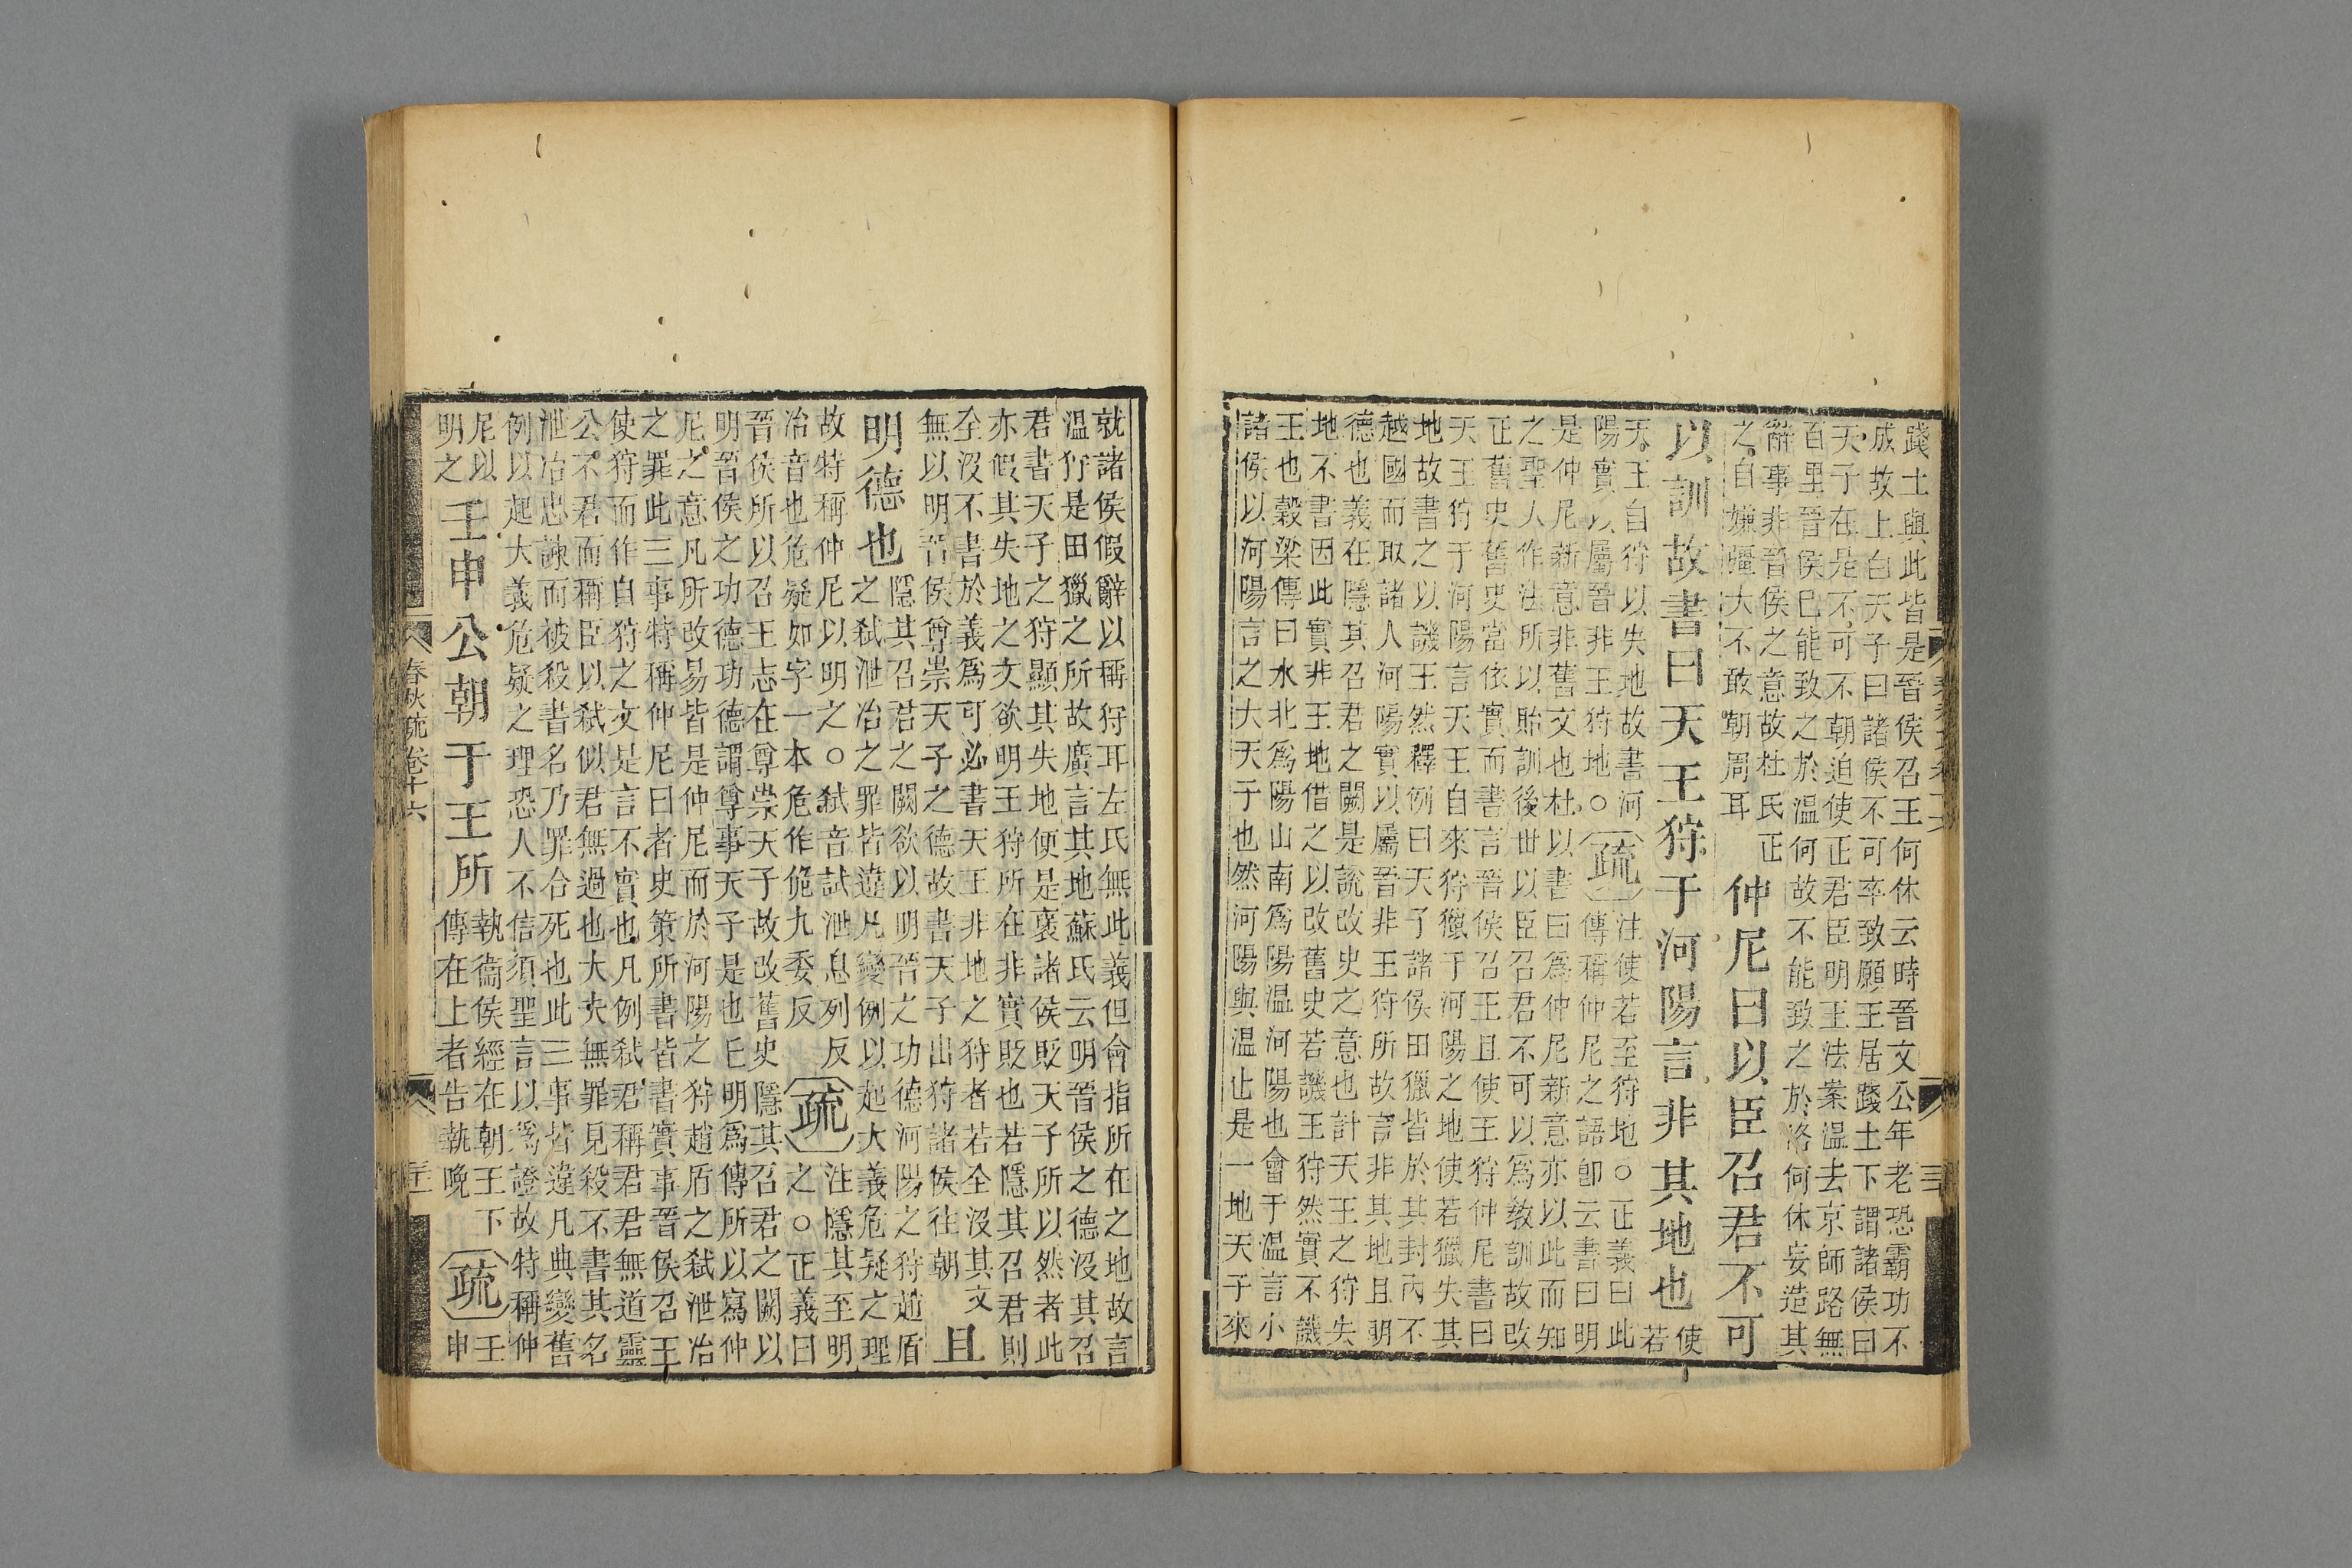 踐土與此皆是晉侯召王何休云時晉文公年老恐霸功不
成故上白天子曰諸侯不可卒致願王居踐土下謂諸侯曰
天子在是不可不朝迫使正君臣明王法案温去京師路無
百里晉侯已能致之於温何故不能致之於洛何休妄造其
辭事非晉侯之意故杜氏正
之自嫌疆大不敢朝周耳
仲尼曰以臣召君不可
以訓故書曰天王狩于河陽言非其地也
使
若
天王自狩以失地故書河
陽實以屬晉非王狩地○
疏
注使若至狩地○正義曰此
傳稱仲尼之語即云書曰明
是仲尼新意非舊文也杜以書曰爲仲尼新意亦以此而知
之聖人作法所以貽訓後世以臣召君不可以爲教訓故改
正舊史舊史當依實而書言晉侯召王且使王狩仲尼書曰
天王狩于河陽言天王自來狩獵于河陽之地使若獵失其
地故書之以譏王然釋例曰天子諸侯田獵皆於其封內不
越國而取諸人河陽實以屬晉非王狩所故言非其地且明
德也義在隱其召君之闕是說改史之意也計天王之狩失
地不書因此實非王地借之以改舊史若譏王狩然實不譏
王也穀梁傳曰水北爲陽山南爲陽温河陽也會于温言小
諸侯以河陽言之大天子也然河陽與温止是一地天子來
就諸侯假辭以稱狩耳左氏無此義但會指所在之地故言
温狩是田獵之所故廣言其地蘇氏云明晉侯之德沒其召
君書天子之狩顯其失地便是褒諸侯貶天子所以然者此
亦假其失地之文欲明王狩所在非實貶也若隱其召君則
全沒不書於義爲可必書天王非地之狩者若全沒其文
無以明晉侯尊崇天子之德故書天子出狩諸侯往朝
且
明德也
隱其召君之闕欲以明晉之功德河陽之狩趙盾
之弑泄冶之罪皆違凡變例以起大義危疑之理
故特稱仲尼以明之○弑音試泄息列反
冶音也危疑如字一本危作佹九委反
疏
注隱其至明
之○正義曰
晉侯所以召王志在尊崇天子故改舊史隱其召君之闕以
明晉侯之功德功德謂尊事天子是也丘明爲傳所以寫仲
尼之意凡所改易皆是仲尼而於河陽之狩趙盾之弑泄冶
之罪此三事特稱仲尼曰者史策所書皆書實事晉侯召王
使狩而作自狩之文是言不實也凡例弑君稱君君無道靈
公不君而稱臣以弑似君無過也大夫無罪見殺不書其名
泄冶忠諫而被殺書名乃罪合死也此三事皆違凡典變舊
例以起大義危疑之理恐人不信須聖言以爲證故特稱仲
尼以
明之
壬申公朝于王所
執衞侯經在朝王下
傳在上者告執晚
疏
壬
申
春秋疏卷十六